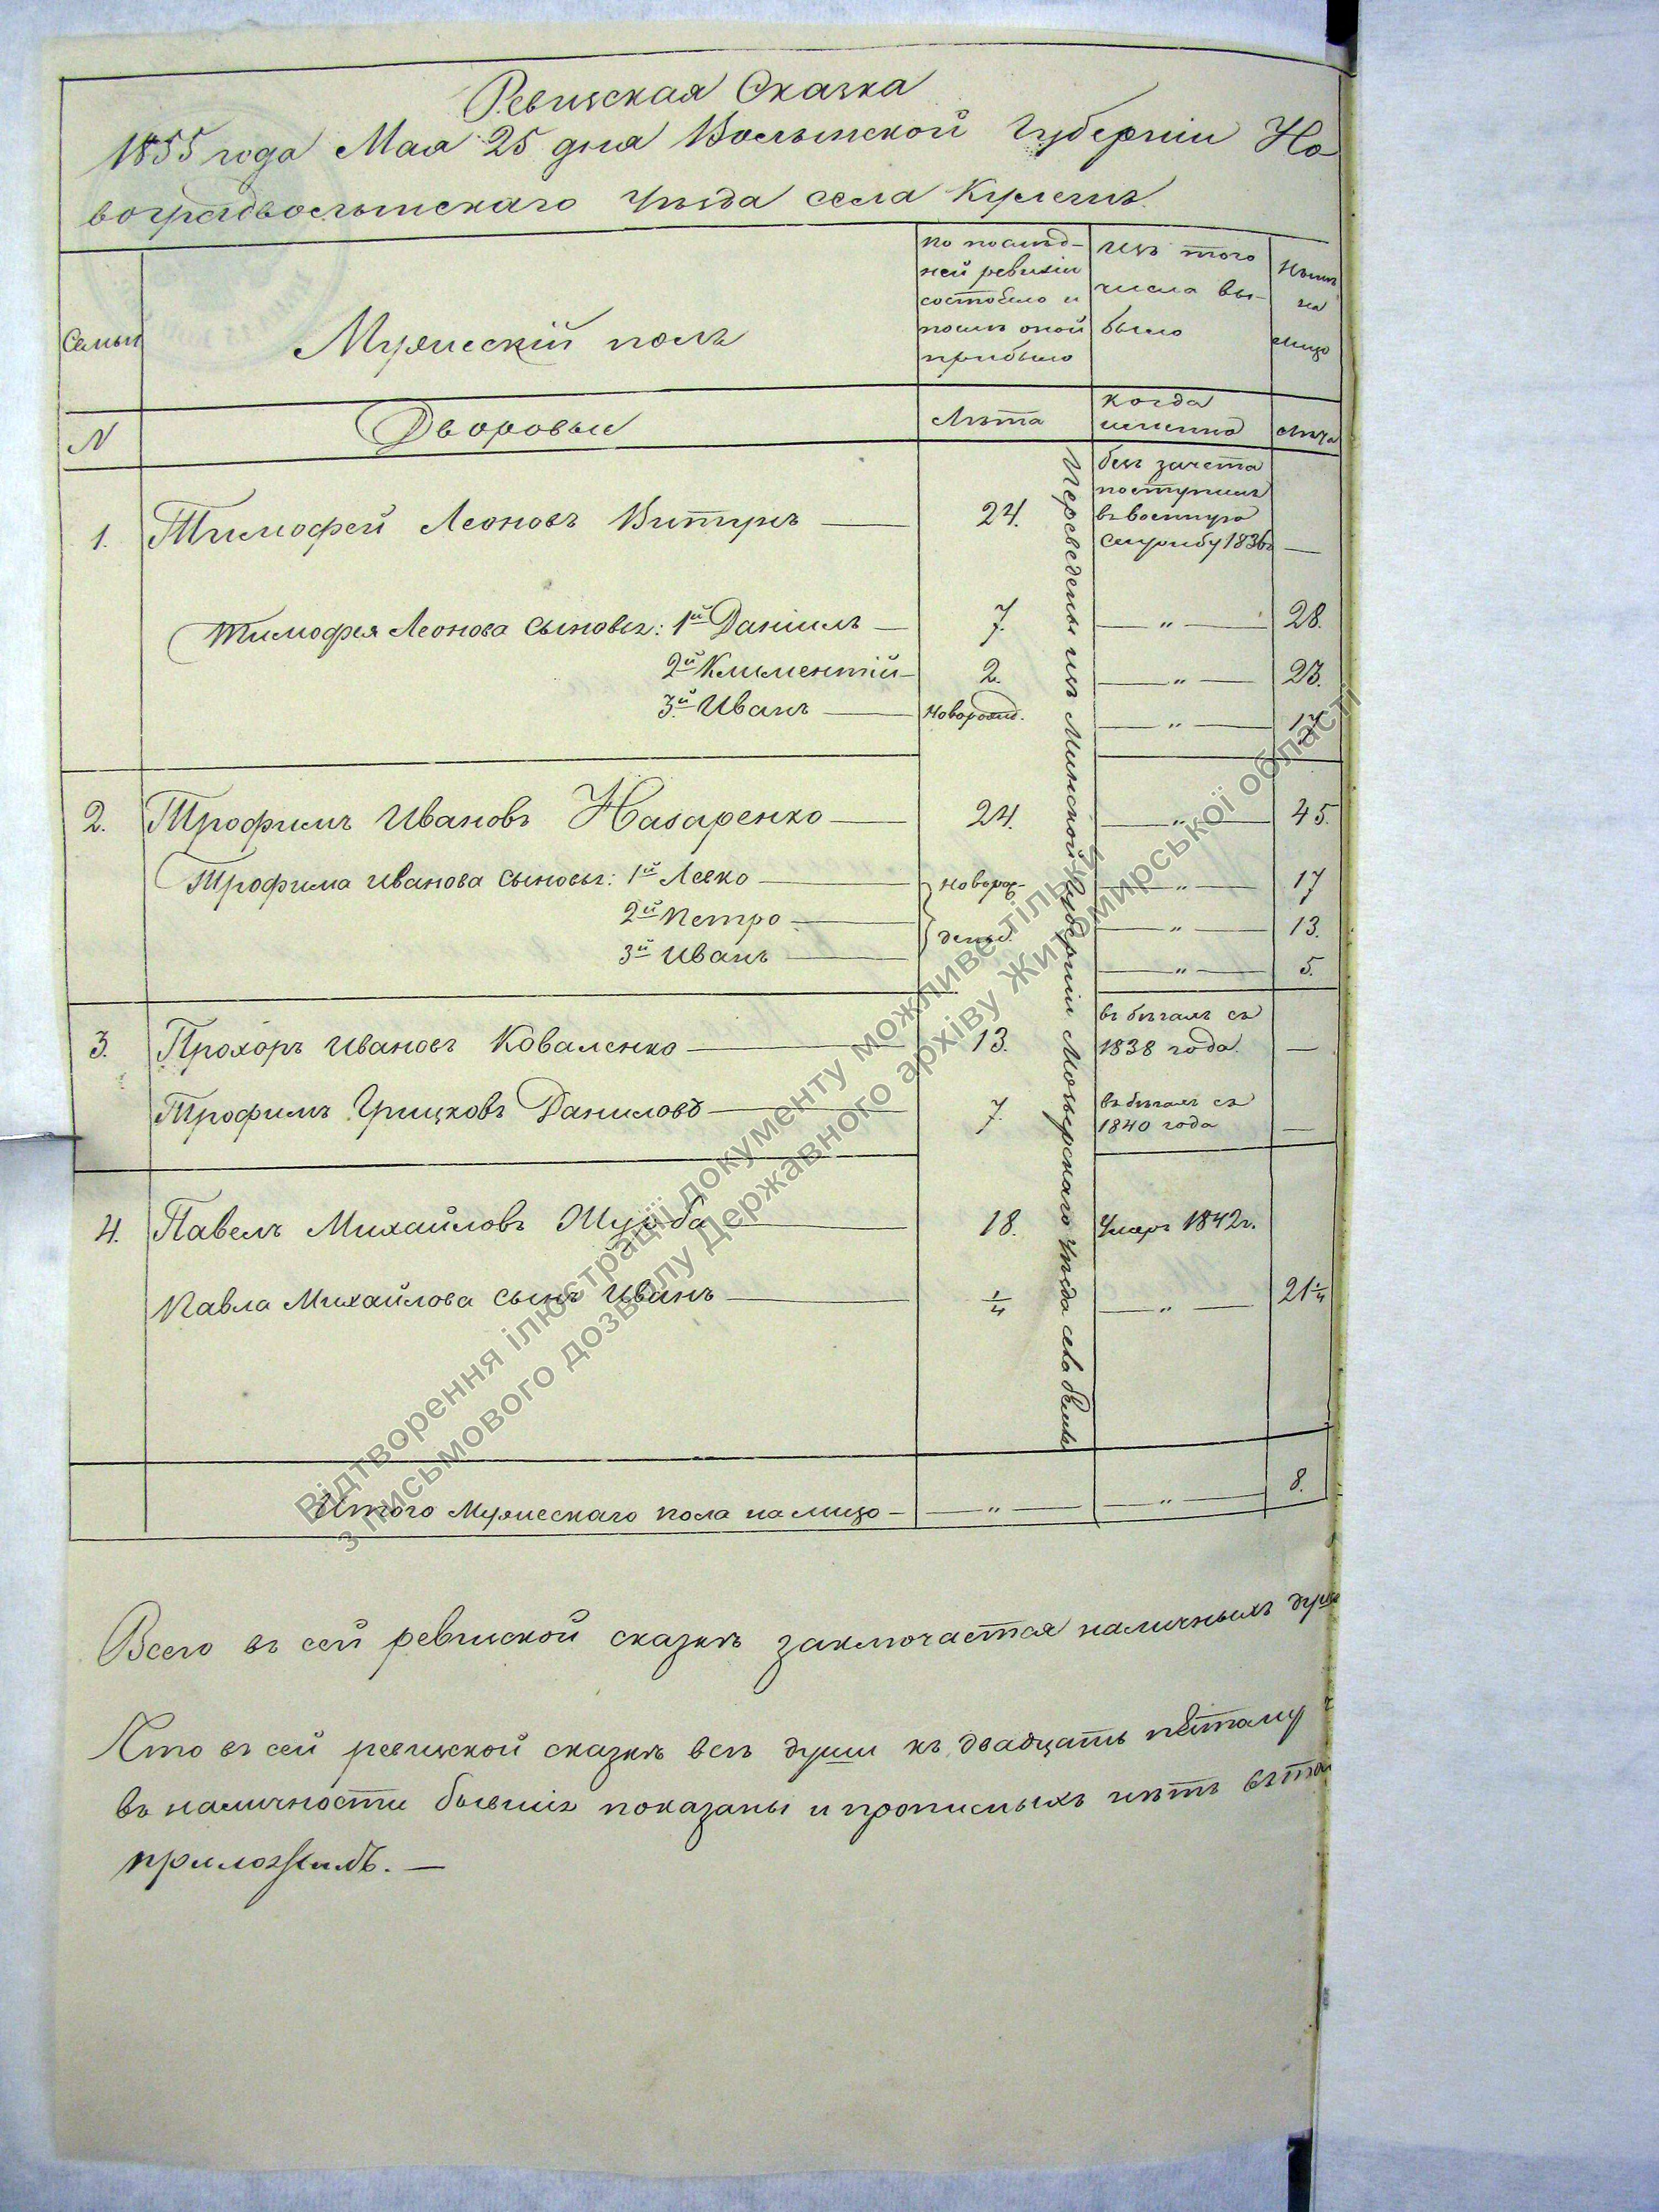 Ревизская Сказка
1855 года Мая 25 дня Волынской Губерніи Но
воградволынскаго Уѣзда села
Семьи
Мужескій полъ
по послѣд-
ней ревизіи
состояло и
послѣ оной
прибыло
изъ того
числа вы-
было
Нынѣ
на
лицо
N
Дворовые
Лѣта
когда
именно
лѣта
1. Тимофей Леоновъ Витунъ — 24.
безъ зачета
поступилъ
въ военную
службу 1836г —
Тимофея Леонова сыновья: 1й Даніилъ — 7. — „ — 28.
2й Климентій — 2. — „ — 23.
3й Иванъ — новорожд. — „ — 17
2. Трофимъ Ивановъ Назаренко — 24. — „ — 45.
Трофима Иванова сыновья: 1й Левко — новорож- — „ — 17
2й Петро — — „ — 13.
3й Иванъ — — „ — 5.
3. Прохоръ Ивановъ Коваленко — 13.
въ бѣгахъ съ
1838 года. —
Трофимъ Грицковъ Даниловъ — 7.
въ бѣгахъ съ
1840 года —
4. Павелъ Михайловъ — 18. Умеръ 1842г.
Павла Михайлова сынъ Иванъ — 1/4 — „ — 21 1/4
Переведены изъ Минской губерніи Мозырскаго уѣзда села
Итого Мужескаго пола на лицо — — „ — — „ — 8.
Всего въ сей ревизской сказкѣ заключается наличныхъ душ
Что въ сей ревизской сказкѣ всѣ души къ двадцать пятому
въ наличности бывшія показаны и прописныхъ нѣтъ въ том
приложилъ. —
Відтворення ілюстрації документу можливе тільки
з письмового дозволу Державного архіву Житомирської області